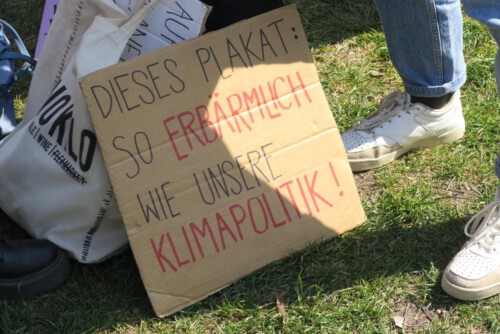 DIESES PLAKAT:
SO ERBÄRMLICH
WIE UNSERE
KLIMAPOLITIK!